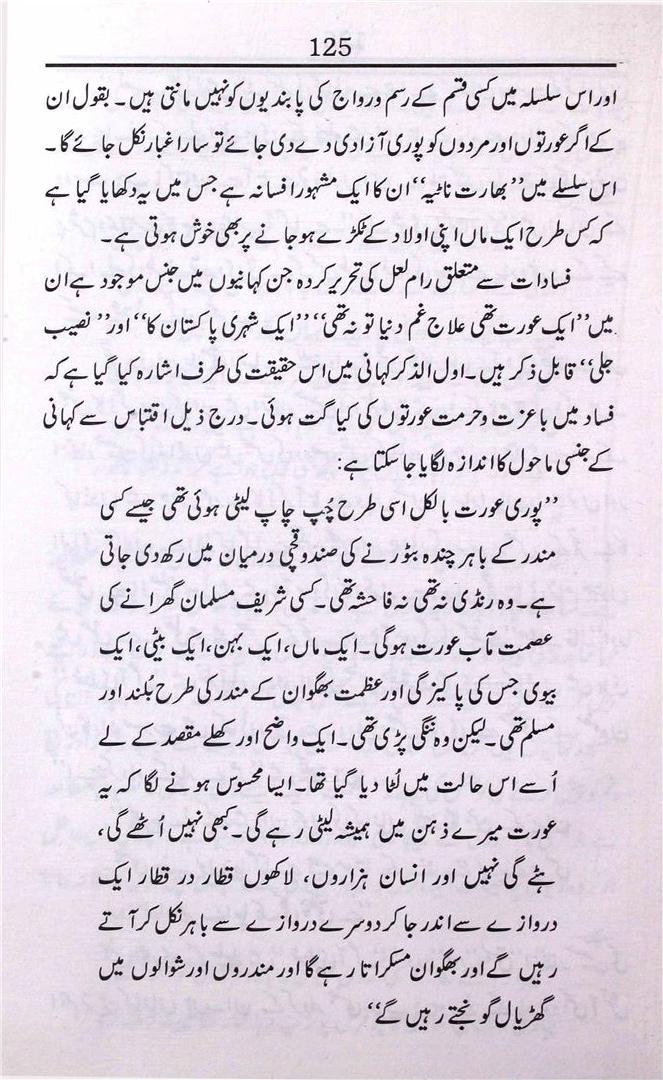 125
اور اس سلسلہ میں کسی قسم کے رسم و رواج کی پابندیوں کو نہیں مانتی ہیں۔ بقول ان
کے اگر عورتوں اور مردوں کو پوری آزادی دے دی جائے تو سارا غبار نکل جائے گا۔
اس سلسلے میں ’’بھارت ناٹیہ‘‘ ان کا ایک مشہور افسانہ ہے جس میں یہ دکھایا گیا ہے
کہ کس طرح ایک ماں اپنی اولاد کے ٹکڑے ہو جانے پر بھی خوش ہوتی ہے۔
فسادات سے متعلق رام لعل کی تحریر کردہ جن کہانیوں میں جنس موجود ہے ان
میں ’’ایک عورت تھی علاج غم دنیا تو نہ تھی‘‘ ’’ایک شہری پاکستان کا‘‘ اور ’’نصیب
جلی‘‘ قابل ذکر ہیں۔ اول الذکر کہانی میں اس حقیقت کی طرف اشارہ کیا گیا ہے کہ
فساد میں باعزت و حرمت عورتوں کی کیا گت ہوئی۔ درج ذیل اقتباس سے کہانی
کے جنسی ماحول کا اندازہ لگایا جا سکتا ہے:
’’پوری عورت بالکل اسی طرح چُپ چاپ لیٹی ہوئی تھی جیسے کسی
مندر کے باہر چندہ بٹورنے کی صندوقچی درمیان میں رکھ دی جاتی
ہے۔ وہ رنڈی نہ تھی نہ فاحشہ تھی۔ کسی شریف مسلمان گھرانے کی
عصمت مآب عورت ہوگی۔ ایک ماں، ایک بہن، ایک بیٹی، ایک
بیوی جس کی پاکیزگی اور عظمت بھگوان کے مندر کی طرح بُلند اور
مسلم تھی۔ لیکن وہ ننگی پڑی تھی۔ ایک واضح اور کھلے مقصد کے لے
اُسے اس حالت میں لُٹا دیا گیا تھا۔ ایسا محسوس ہونے لگا کہ یہ
عورت میرے ذہن میں ہمیشہ لیٹی رہے گی۔ کبھی نہیں اُٹھے گی،
ہٹے گی نہیں اور انسان ہزاروں، لاکھوں قطار در قطار ایک
دروازے سے اندر جا کر دوسرے دروازے سے باہر نکل کر آتے
رہیں گے اور بھگوان مسکراتا رہے گا اور مندروں اور شوالوں میں
گھڑیال گونجتے رہیں گے‘‘